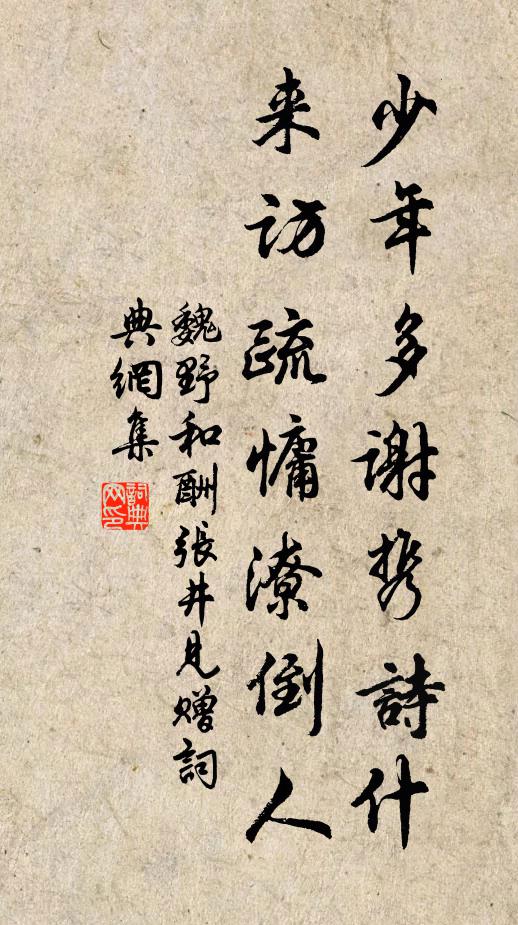 少年多谢携詩什
来访疏慵潦倒人
魏野和酬張井見贈詞
典網集
詞典
网印